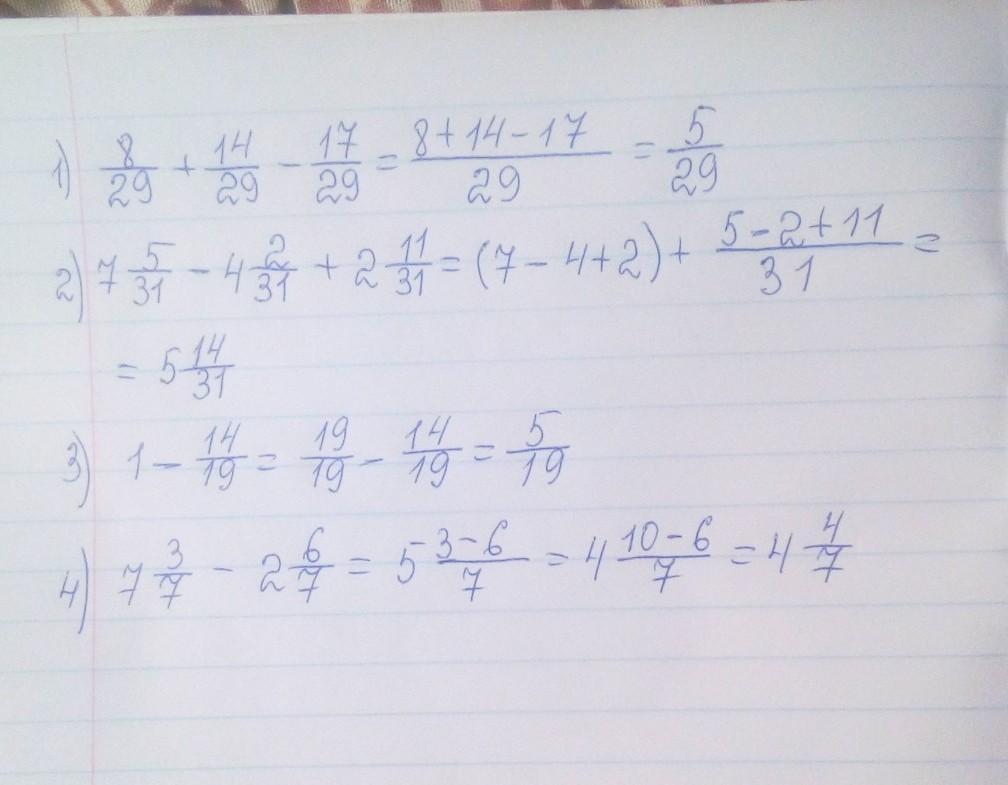 1) 8/29 + 14/29 - 17/29 = (8+14-17)/29 = 5/29
2) 7 5/31 - 4 2/31 + 2 11/31 = (7-4+2) + (5-2+11)/31 =
= 5 14/31
3) 1 - 14/19 = 19/19 - 14/19 = 5/19
4) 7 3/7 - 2 6/7 = 5 (3-6)/7 = 4 (10-6)/7 = 4 4/7